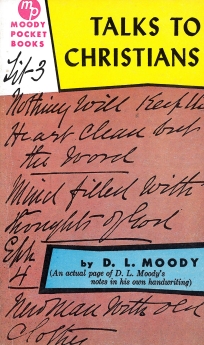 mp
MOODY
POCKET
BOOKS
TALKS TO
CHRISTIANS
Tit-3
Nothing Will Keep the
Heart Clean but
the Word
Mind filled with
thoughts of God
Eph
4
by D. L. MOODY
(An actual page of D. L. Moody's
notes in his own handwriting)
New Man With old
Clothes